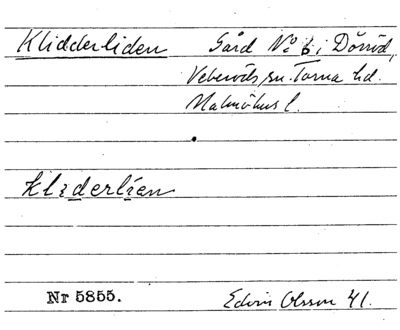 Klidderliden Gård No 6 i Dörröd,
Veberöds sn. Torna hd.
Malmöhus l.
Nr 5855. Edvin Olsson 41.